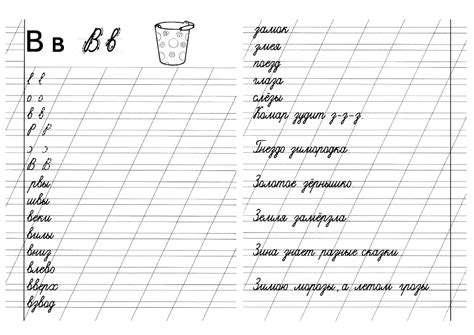 В в В в
о о
в в
В В
рвы
швы
веки
вилы
вниз
влево
вверх
взвод
замок
змея
поезд
глаза
слёзы
Комар зудит з-з-з
Гнездо зимородка
Золотое зёрнышко
Земля замёрзла
Зина знает разные сказки
Зимою морозы, а летом грозы